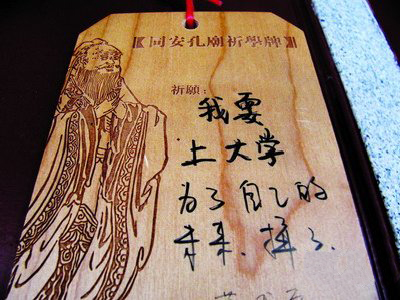 【同安孔廟祈學牌】
祈願：
我要
上大学
为了自己的
未来、拚了、